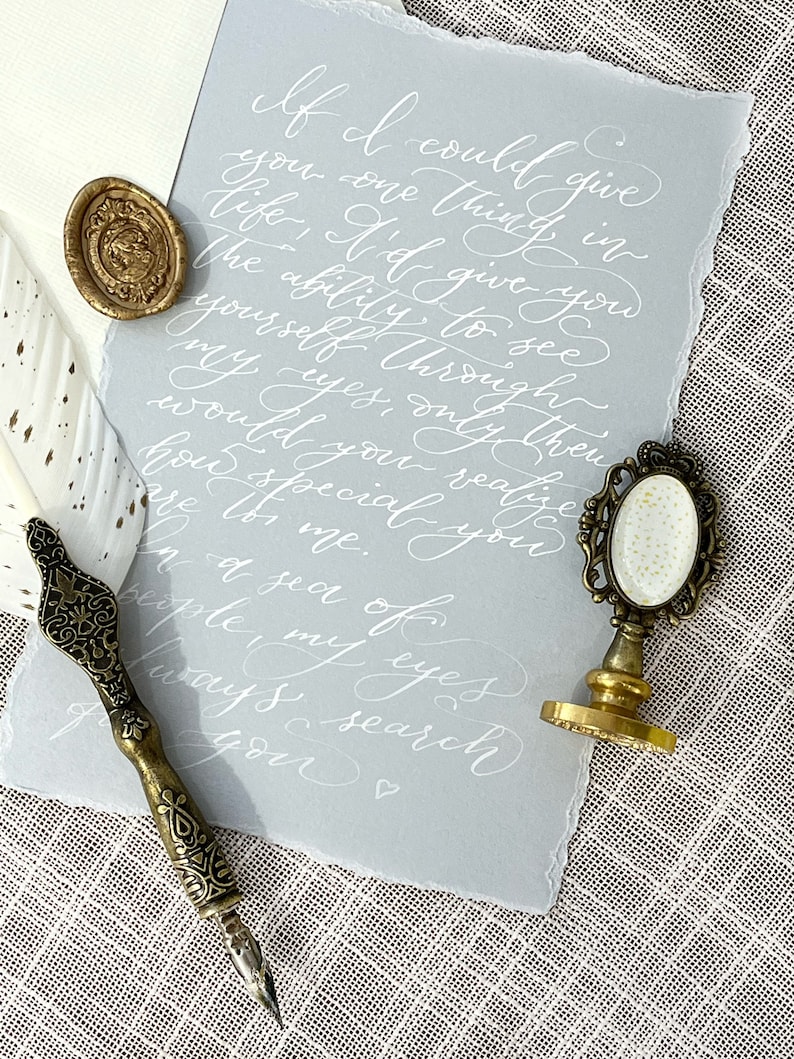 If I could give
you one thing in
life, I'd give you
the ability to see
yourself through
my eyes, only then
would you realize
how special you
are to me.
In a sea of
people, my eyes
always search
for you